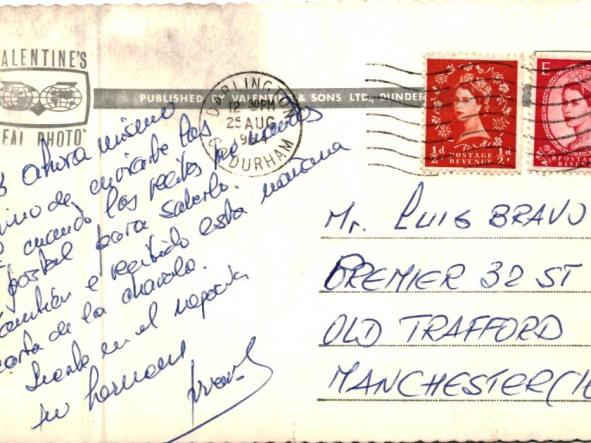 VALENTINE'S
"REAL PHOTO"
PUBLISHED BY VALENTINE & SONS LTD., DUNDEE
DARLINGTON
12 30PM
25 AUG
CO. DURHAM
½d POSTAGE REVENUE ½d
E
POSTAGE REVENUE
ahora mismo
de enviarte las
cuando las recibes me mandas
postal para saberlo.
también e recibido esta mañana
carta de la chavala.
Suerte en el negocio
tu hermano
Mr. LUIS BRAVO
PREMIER 32 ST
OLD TRAFFORD
MANCHESTER (16